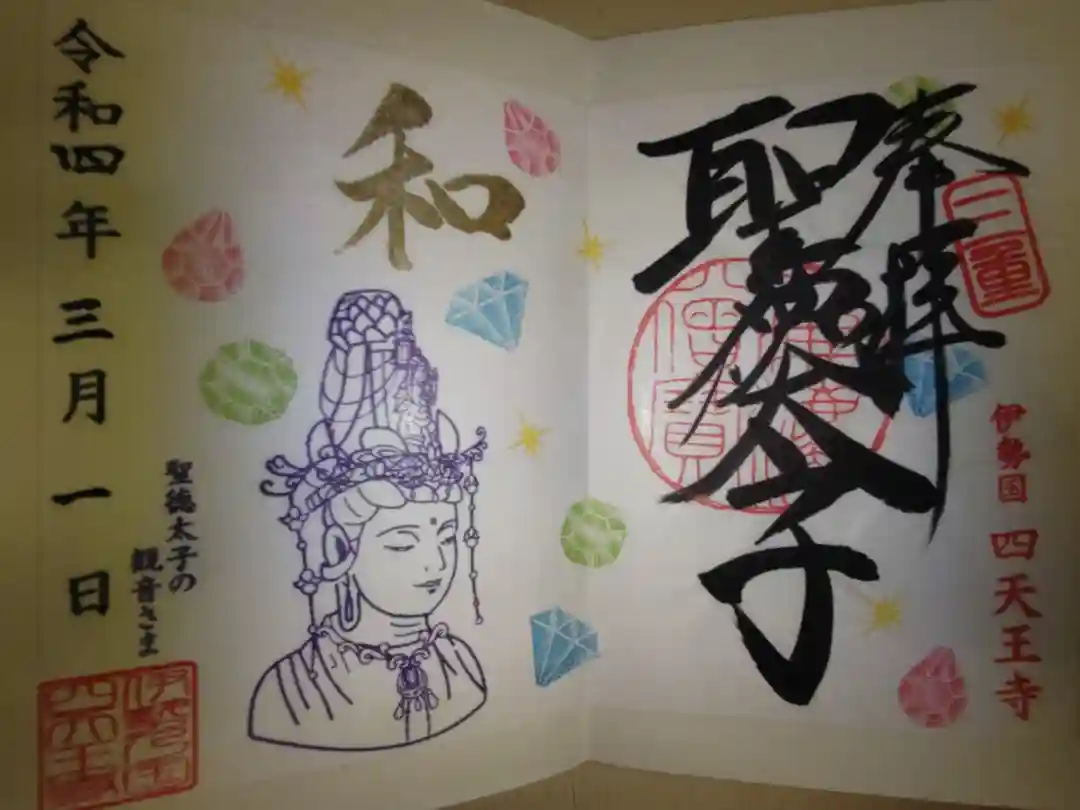 奉拝
二童
伊勢国 四天王寺
聖徳太子
僧寶
和
聖徳太子の
観音さま
令和四年三月一日